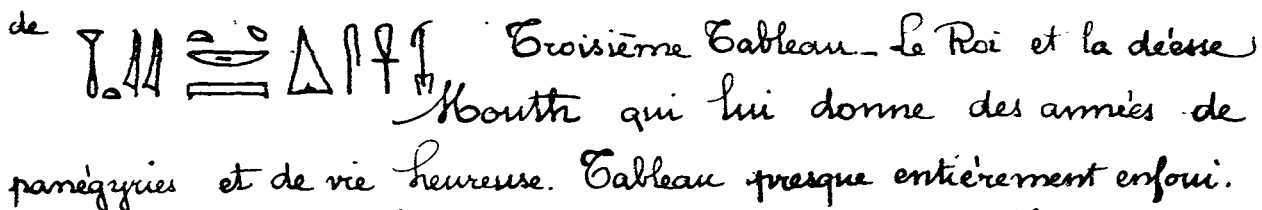 de Troisième Tableau_ Le Roi et la déesse
Mouth qui lui donne des années de
panégyries et de vie heureuse. Tableau presque entièrement enfoui.